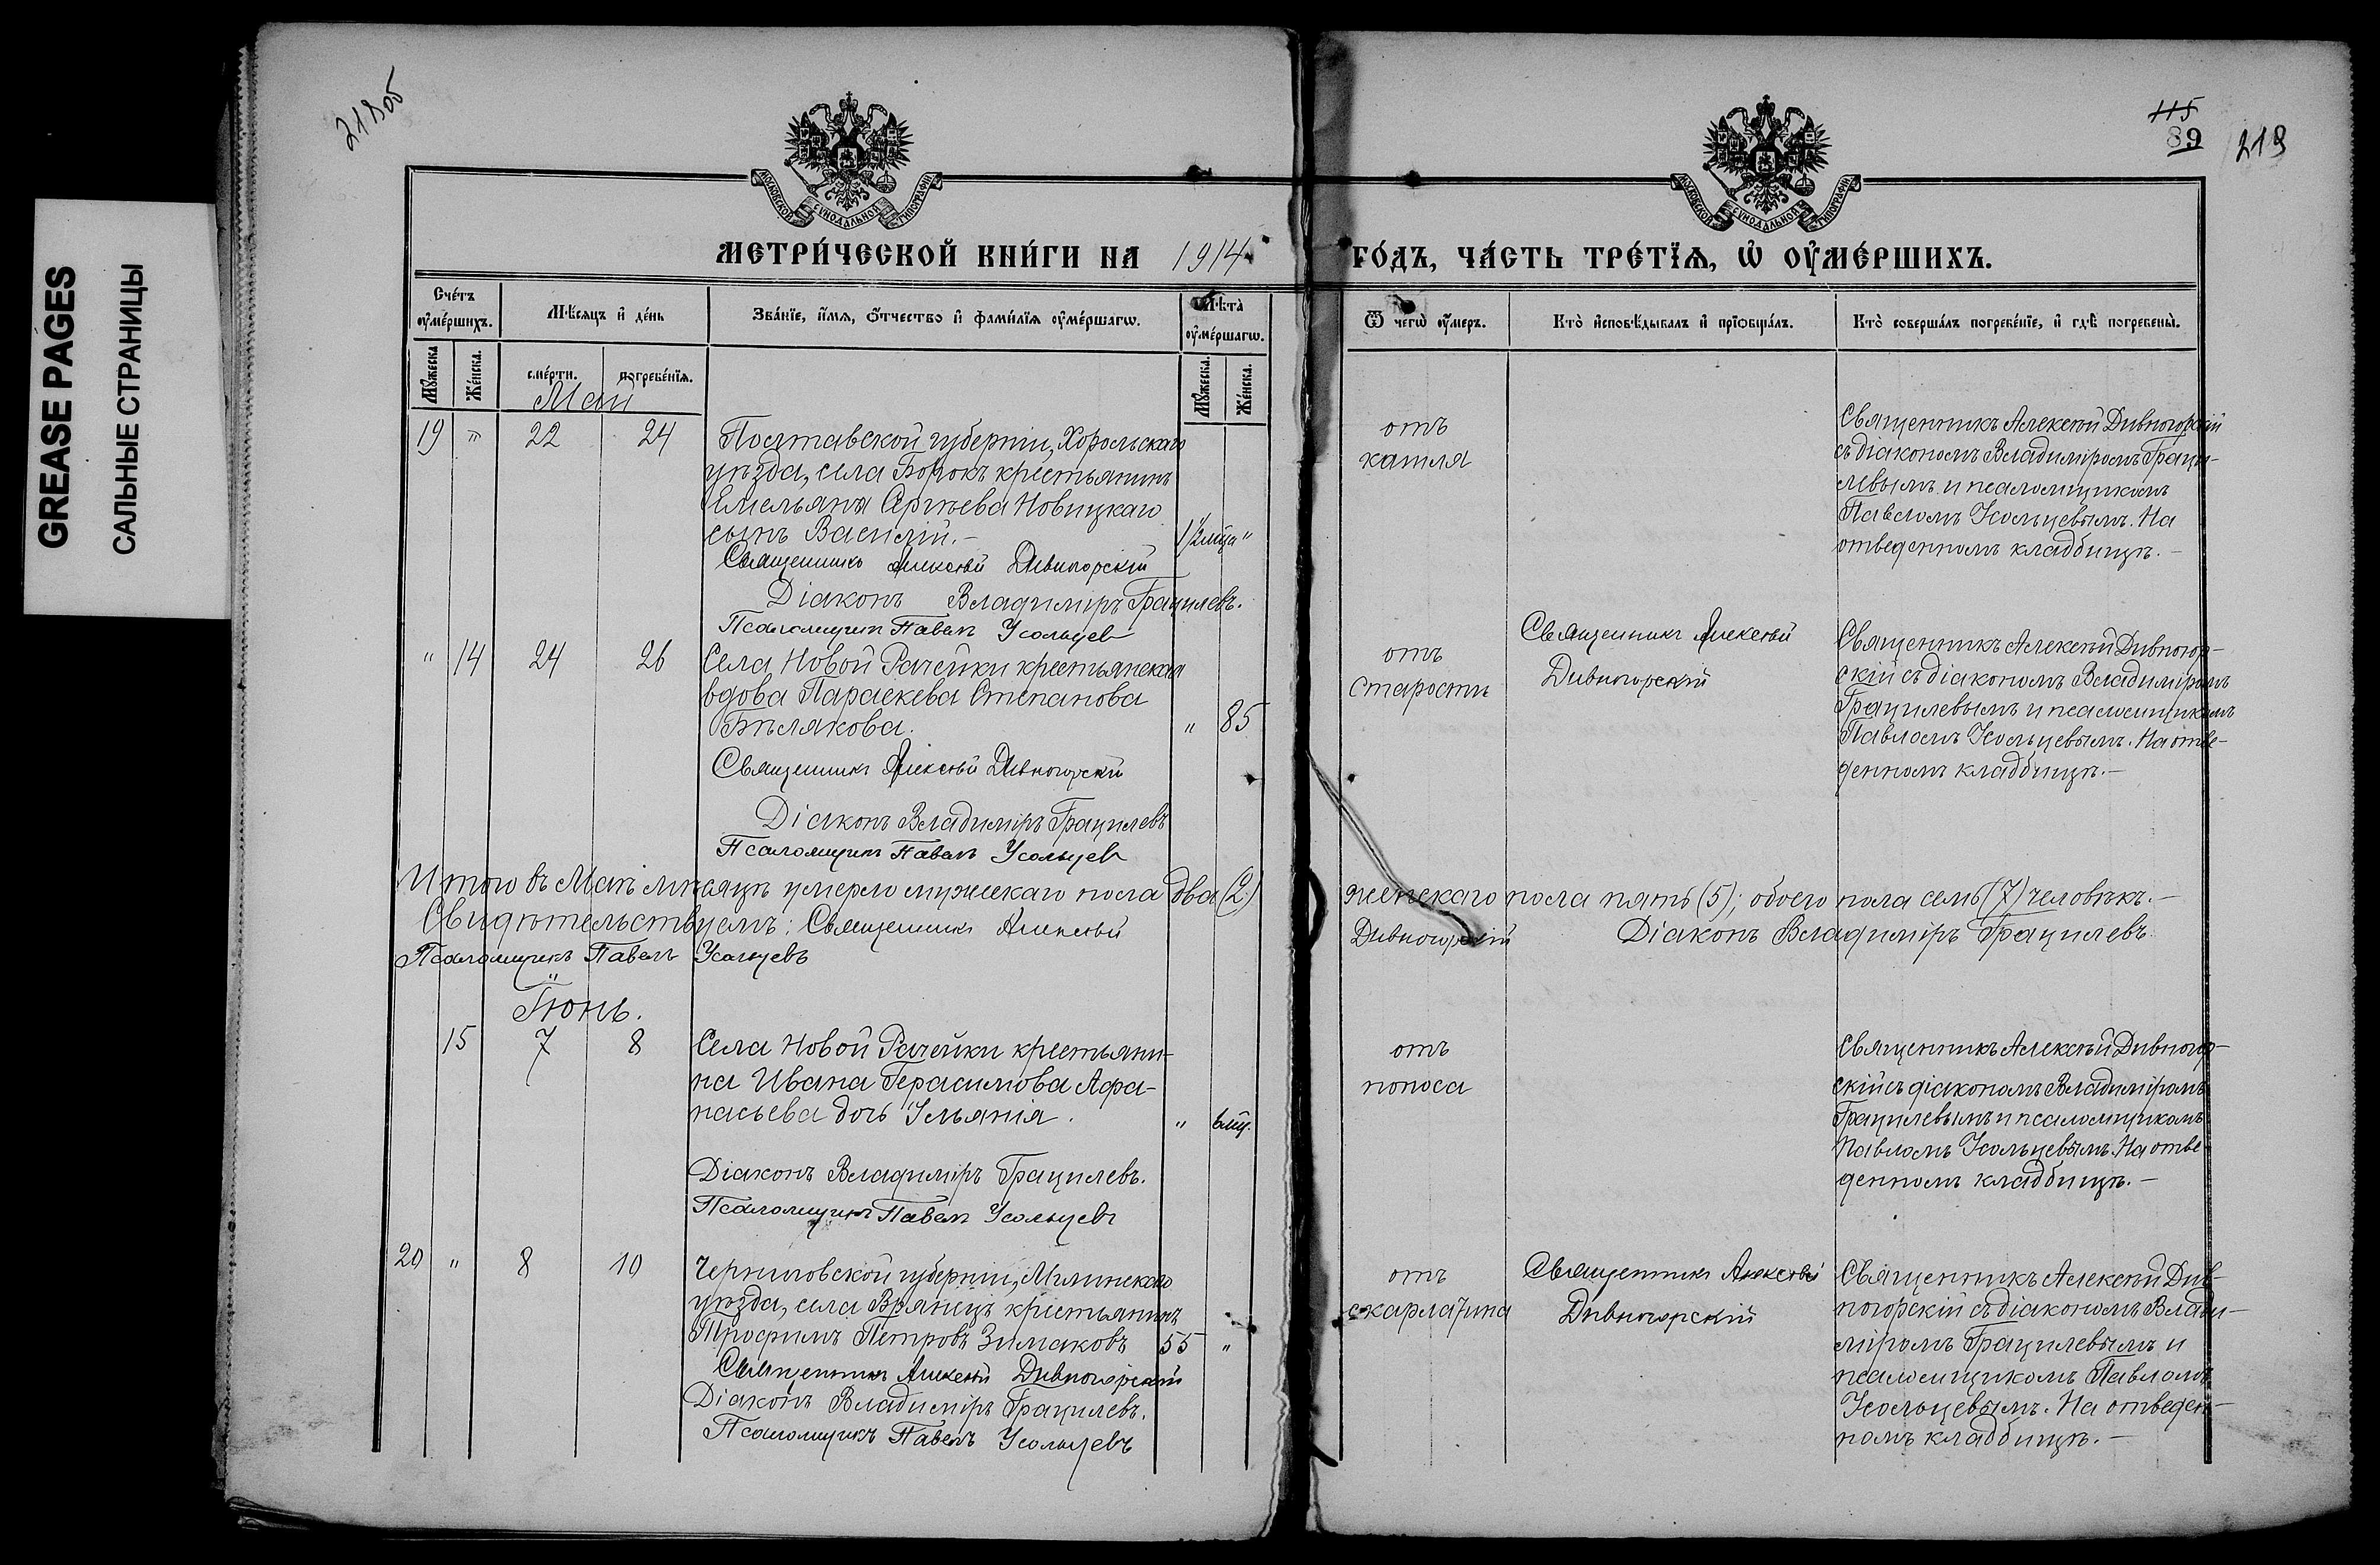 GREASE PAGES
САЛЬНЫЕ СТРАНИЦЫ
218об
115
89
219
МОСКОВСКОЙ СѴНОДАЛЬНОЙ ТИПОГРАФІИ
МОСКОВСКОЙ СѴНОДАЛЬНОЙ ТИПОГРАФІИ
МЕТРИ́ЧЕСКОЙ КНИ́ГИ НА 1914 ГО́ДЪ, ЧА́СТЬ ТРЕ́ТЇѦ, Ѡ҆ ОУ҆МЕ́РШИХЪ.
Сче́тъ оу҆ме́ршихъ.
Мѣ́сѧцъ и҆ де́нь
Зва́нїе, и҆́мѧ, ѻ҆́тчество и҆ фами́лїѧ оу҆ме́ршагѡ.
Лѣ́та оу҆ме́ршагѡ.
Ѿ чегѡ̀ оу҆́меръ.
Кто̀ и҆сповѣ́дывалъ и҆ прїѡбща́лъ.
Кто̀ соверша́лъ погребе́нїе, и҆ гдѣ̀ погребены̀.
Мꙋ́жеска
Же́нска.
сме́рти.
погребе́нїѧ.
Мꙋ́жеска.
Же́нска.
Май
19 " 22 24
Полтавской губерніи, Хорольскаго
уѣзда, села Борокъ крестьянинъ
Емельяна Сергѣева Новицкаго
сынъ Василій.-
1/2 мѣца "
Священникъ Алексѣй Дивногорскій
Діаконъ Владиміръ Грацилевъ.
Псаломщик Павелъ Усольцев
отъ
кашля
Священникъ Алексѣй Дивногорскій
съ діакономъ Владиміромъ Граци-
левымъ и псаломщикомъ
Павломъ Усольцевымъ. На
отведенномъ кладбищѣ.-
" 14 24 26
Села Новой Рачейки крестьянская
вдова Параскева Степанова
Бѣлякова.
" 85
Священникъ Алексѣй Дивногорскій
Діаконъ Владиміръ Грацилевъ
Псаломщикъ Павелъ Усольцев
отъ
старости
Священникъ Алексѣй
Дивногорскій
Священникъ Алексѣй Дивногор-
скій съ діакономъ Владиміромъ
Грацилевымъ и псаломщикомъ
Павломъ Усольцевымъ. На отве-
денномъ кладбищѣ.-
Итого въ Маѣ мѣсяцѣ умерло мужескаго пола два (2) женскаго пола пять (5); обоего пола семь (7) человѣкъ.-
Свидѣтельствуемъ: Священникъ Алексѣй Дивногорскій Діаконъ Владиміръ Грацилевъ
Псаломщикъ Павелъ Усольцевъ
Іюнь.
15 7 8
Села Новой Рачейки крестьяни-
на Ивана Герасимова Афа-
насьева дочь Ульянія.
" 6 мѣц.
Діаконъ Владиміръ Грацилевъ.
Псаломщикъ Павелъ Усольцевъ
отъ
поноса
Священникъ Алексѣй Дивногор-
скій съ діакономъ Владиміромъ
Грацилевымъ и псаломщикомъ
Павломъ Усольцевымъ. На отве-
денномъ кладбищѣ.-
20 " 8 10
Черниговской губерніи, Мглинскаго
уѣзда, села Врянецъ крестьянинъ
Трофимъ Петровъ Зимаковъ
55 "
Священникъ Алексѣй Дивногорскій
Діаконъ Владиміръ Грацилевъ.
Псаломщикъ Павелъ Усольцевъ
отъ
скарлатина
Священникъ Алексѣй
Дивногорскій
Священникъ Алексѣй Див-
ногорскій съ діакономъ Влади-
міромъ Грацилевымъ и
псаломщикомъ Павломъ
Усольцевымъ. На отведен-
номъ кладбищѣ.-